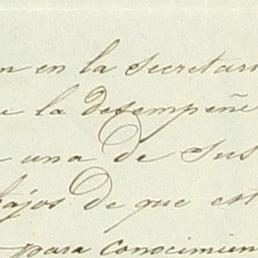 n en la secretari
e la desempeñe
una de sus
bajos de que est
para conocimien